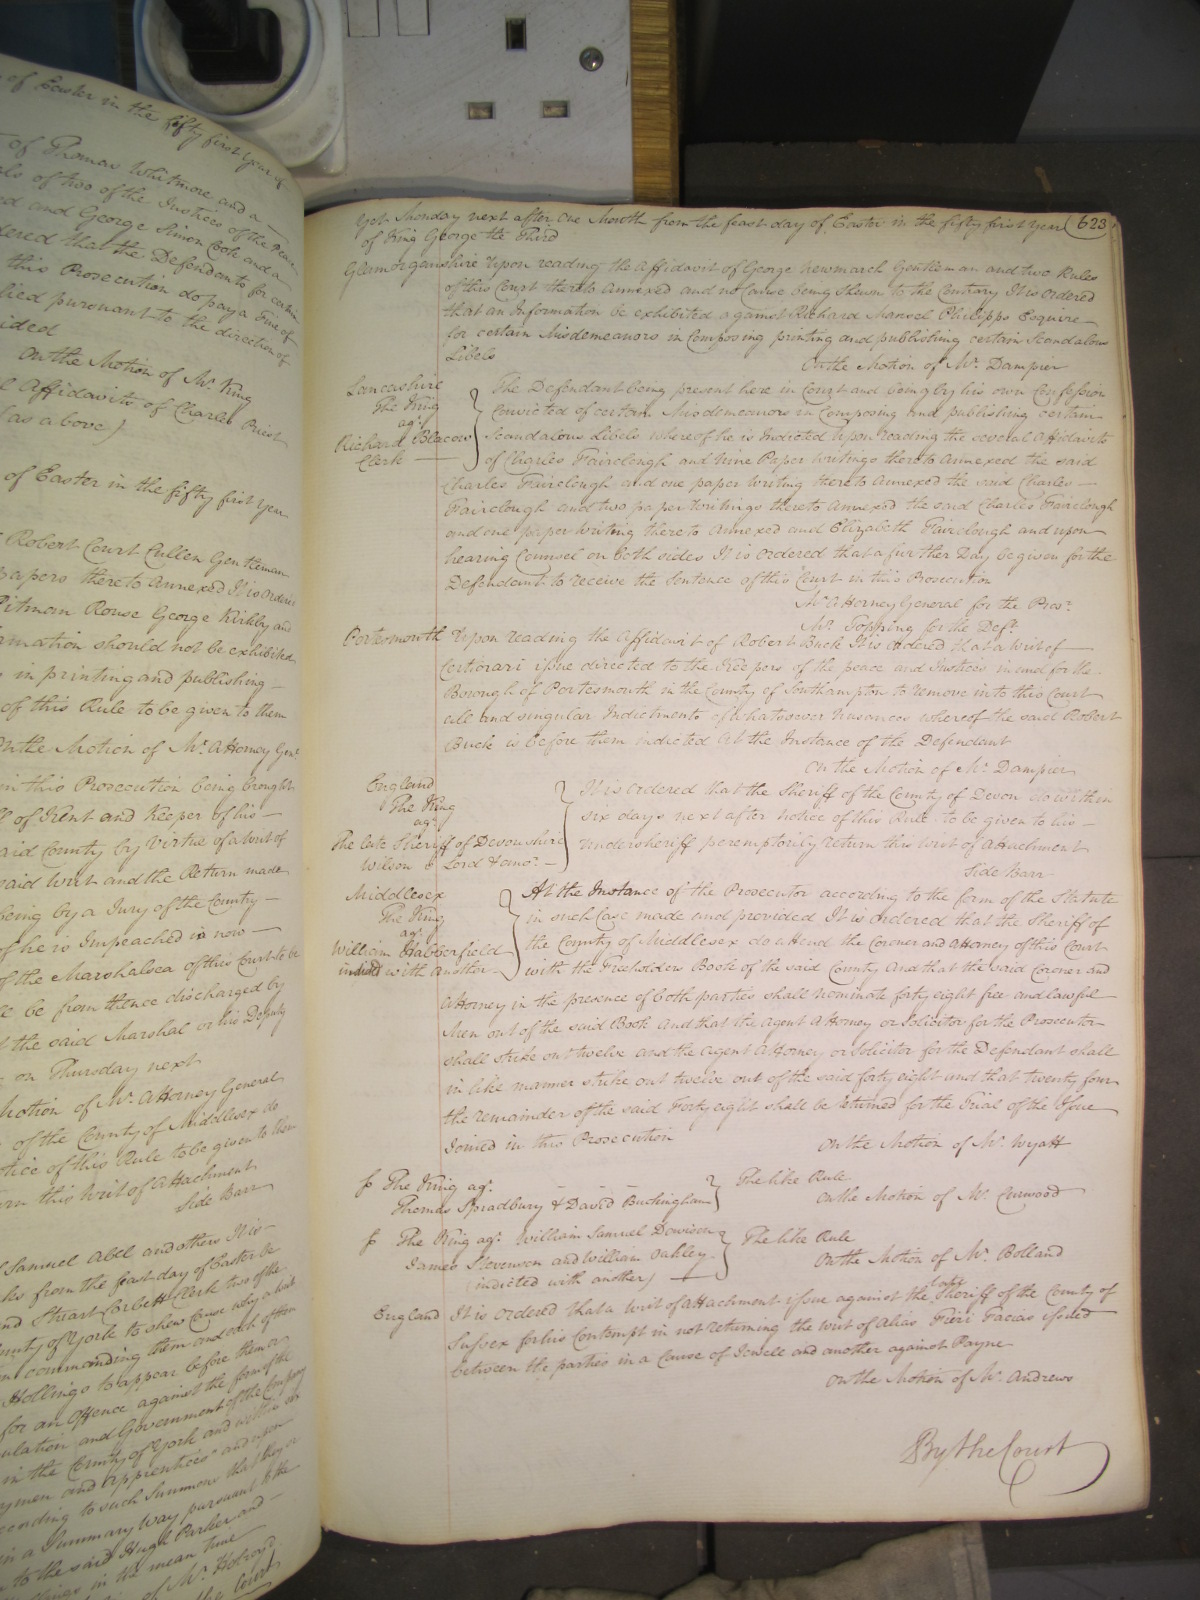 of Easter in the fifty first Year of
of Thomas Whitmore and a
als of two of the Justices of the Peace
ed and George Simon Cook and a
dered that the Defendants for certain
this Prosecution do pay a Fine of
lied pursuant to the direction of
ided
On the Motion of Mr. King
Affidavits of Charles Priest
(as above)
of Easter in the fifty first Year
Robert Court Cullen Gentleman
papers thereto Annexed It is Ordered
Pitman Rouse George Kirkby and
rmation should not be exhibited
in printing and publishing
of this Rule to be given to them
On the Motion of Mr. Attorney Genl.
in this Prosecution being brought
of Kent and Keeper of his
said County by virtue of a writ of
said writ and the Return made
being by a Jury of the Country
of he is Impeached is now
of the Marshalsea of this Court to be
be from thence discharged by
the said Marshal or his Deputy
on Thursday next
Motion of Mr. Attorney General
of the County of Middlesex do
otice of this Rule to be given to them
rn this Writ of Attachment
Side Barr
Samuel Abel and others It is
ks from the feast day of Easter be
and Stuart Corbett Clerk two of the
unty of York to shew Cause why a writ
commanding them and each of them
Hollings to appear before them a
for an Offence against the form of the
ulation and Government of the Company
in the County of York and
ymen and Apprentices" and upon
ccording to such Summons that they
in a Summary way pursuant to the
to the said Hugh Parker and
in the mean time
of Mr. Holroyd
the Court
Yet Monday next after One Month from the feast day of Easter in the fifty first Year 623
of King George the Third
Glamorganshire Upon reading the Affidavit of George Newmarch Gentleman and two Rules
of this Court thereto Annexed and no Cause being Shewn to the Contrary It is Ordered
that an Information be exhibited against Richard Mansel Philipps Esquire
for certain Misdemeanors in Composing printing and publishing certain Scandalous
Libels
On the Motion of Mr. Dampier
Lancashire
The King
agt.
Richard Blacow
Clerk
The Defendant being present here in Court and being by his own Confession
Convicted of certain Misdemeanors in Composing and publishing certain
Scandalous Libels whereof he is Indicted Upon reading the several Affidavits
of Charles Fairclough and Nine Paper Writings thereto Annexed the said
Charles Fairclough and one paper Writing thereto Annexed the said Charles
Fairclough and two paper Writings thereto Annexed the said Charles Fairclough
and one paper Writing thereto Annexed and Elizabeth Fairclough and upon
hearing Counsel on both sides It is Ordered that a further Day be given for the
Defendant to receive the Sentence of this Court in this Prosecution
Mr. Attorney General for the Prosr.
Mr. Topping for the Deft.
Portesmouth Upon reading the Affidavit of Robert Buck It is Ordered that a writ of
Certiorari issue directed to the Keepers of the peace and Justices in and for the
Borough of Portesmouth in the County of Southampton to remove into this Court
all and singular Indictments of whatsoever Nusances whereof the said Robert
Buck is before them indicted At the Instance of the Defendant
On the Motion of Mr. Dampier
England
The King
agt.
The late Sheriff of Devonshire
Wilson & Lord & anor.
It is Ordered that the Sheriff of the County of Devon do within
six days next after notice of this Rule to be given to his
Undersheriff peremptorily return this writ of Attachment
Side Barr
Middlesex
The King
agt.
William Habberfield
indicted with another
At the Instance of the Prosecutor according to the form of the Statute
in such Case made and provided It is ordered that the Sheriff of
the County of Middlesex do attend the Coroner and Attorney of this Court
with the Freeholders Book of the said County And that the said Coroner and
Attorney in the presence of both parties shall nominate forty eight free and lawful
Men out of the said Book And that the Agent Attorney or Solicitor for the Prosecutor
shall strike out twelve and the Agent Attorney or Solicitor for the Defendant shall
in like manner strike out twelve out of the said forty eight and that twenty four
the remainder of the said Forty eight shall be returned for the Trial of the Issue
Joined in this Prosecution
On the Motion of Mr. Wyatt
The King agt.
Thomas Spradbury & David Buckingham
The like Rule
On the Motion of Mr. Curwood
The King agt. William Samuel Dowison
James Stevenson and William Oakley
(indicted with another)
The like Rule
On the Motion of Mr. Bolland
England It is Ordered that a writ of Attachment issue against the late Sheriff of the County of
Sussex for his Contempt in not returning the writ of Alias Fieri Facias issued
between the parties in a Cause of Jewell and another against Payne
On the Motion of Mr. Andrews
By the Court